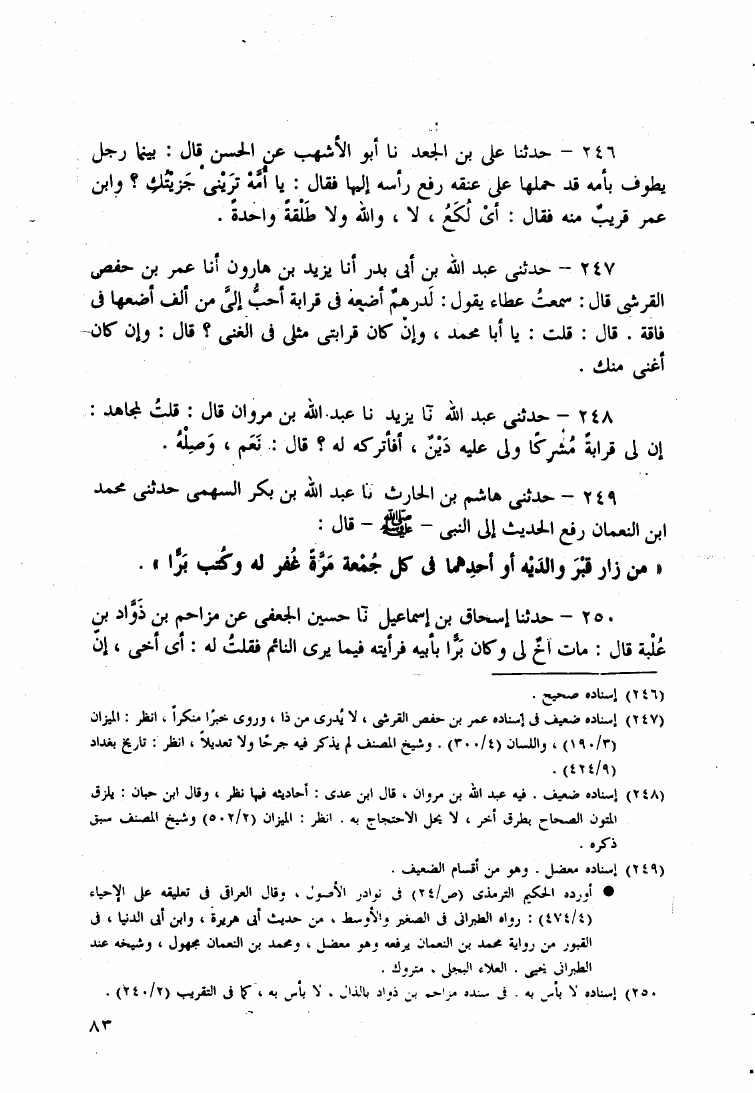 ٢٤٦ – حدثنا على بن الجعد نا أبو الأشهب عن الحسن قال : بينما رجل
يطوف بأمه قد حملها على عنقه رفع رأسه إليها فقال : يا أُمَّهْ تَرَيْنى جَزيْتُكِ ؟ وابن
عمر قريبٌ منه فقال : أىْ لُكَعُ ، لا ، والله ولا طَلْقةً واحدةً .
٢٤٧ – حدثنى عبد الله بن أبى بدر أنا يزيد بن هارون أنا عمر بن حفص
القرشى قال : سمعتُ عطاء يقول : لَدرهمٌ أضعِه فى قرابة أحبُّ إلىَّ من ألف أضعها فى
فاقة . قال : قلت : يا أبا محمد ، وإنْ كان قرابتى مثلى فى الغنى ؟ قال : وإن كان
أغنى منك .
٢٤٨ – حدثنى عبد الله نَا يزيد نا عبد الله بن مروان قال : قلتُ لمجاهد :
إن لى قرابةً مُشْرِكًا ولى عليه دَيْنٌ ، أفأتركه له ؟ قال : نَعَم ، وَصِلْهُ .
٢٤٩ – حدثنى هاشم بن الحارث نَا عبد الله بن بكر السهمى حدثنى محمد
ابن النعمان رفع الحديث إلى النبى – ﷺ – قال :
« من زار قَبْرَ والدَيْه أو أحدِهما فى كل جُمْعة مَرَّةً غُفر له وكُتب بَرًّا » .
٢٥٠ – حدثنا إسحاق بن إسماعيل نَا حسين الجعفى عن مزاحم بن ذَوَّاد بن
عُلْبة قال : مات آخٌ لى وكان بَرًّا بأبيه فرأيته فيما يرى النائم فقلتُ له : أى أخى ، إنّ
(٢٤٦) إسناده صحيح .
(٢٤٧) إسناده ضعيف فى إسناده عمر بن حفص القرشى ، لا يُدرى من ذا ، وروى خبرًا منكراً ، انظر : الميزان
(١٩٠/٣) ، واللسان (٣٠٠/٤) . وشيخ المصنف لم يذكر فيه جرحًا ولا تعديلاً ، انظر : تاريخ بغداد
(٤٢٤/٩) .
(٢٤٨) إسناده ضعيف . فيه عبد الله بن مروان ، قال ابن عدى : أحاديثه فيها نظر ، وقال ابن حبان : يلزق
المتون الصحاح بطرق أخر ، لا يحل الاحتجاج به . انظر : الميزان (٥٠٢/٢) وشيخ المصنف سبق
ذكره .
(٢٤٩) إسناده معضل . وهو من أقسام الضعيف .
● أورده الحكيم الترمذى (ص/٢٤) فى نوادر الأصول ، وقال العراقى فى تعليقه على الإحياء
(٤٧٤/٤) : رواه الطبرانى فى الصغير والأوسط ، من حديث أبى هريرة ، وابن أبى الدنيا ، فى
القبور من رواية محمد بن النعمان يرفعه وهو معضل ، ومحمد بن النعمان مجهول ، وشيخه عند
الطبرانى يحيى . العلاء البجلى . متروك .
(٢٥٠ إسناده لا بأس به . فى سنده مزاحم بن ذواد بالذال . لا بأس به ، كما فى التقريب (٢٤٠/٢) .
٨٣